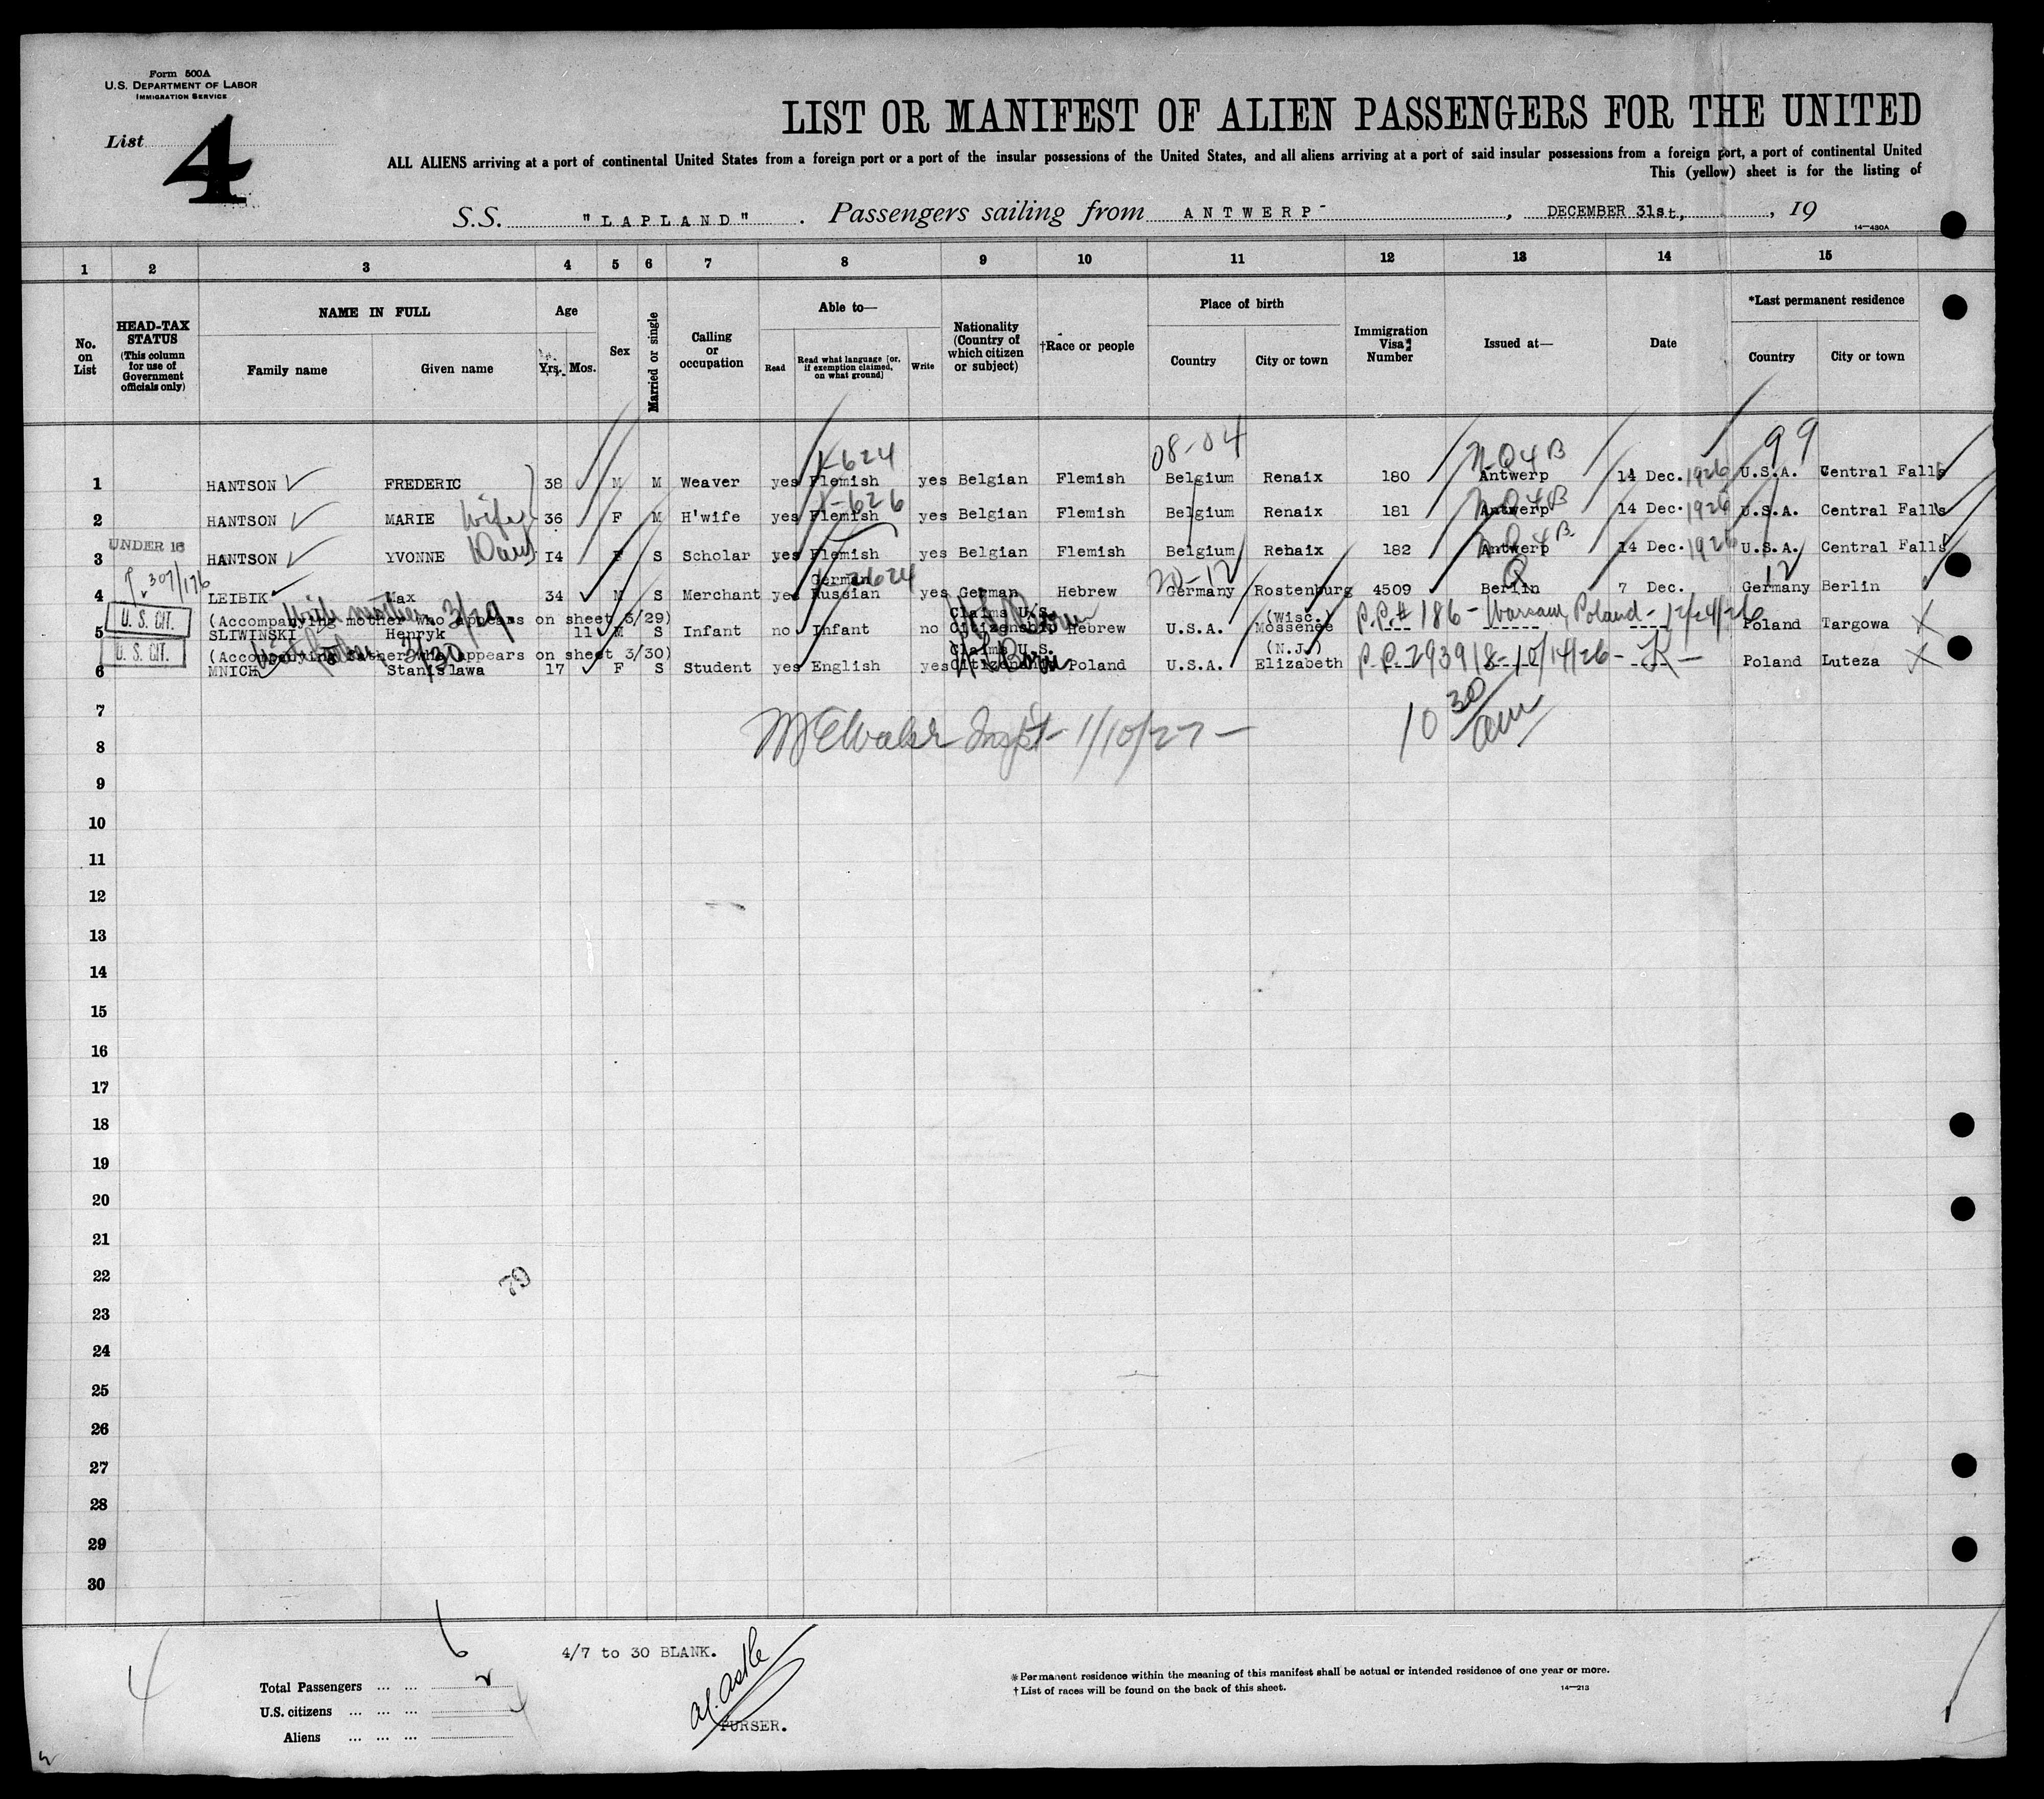 Form 500A
U.S. DEPARTMENT OF LABOR
IMMIGRATION SERVICE
List 4
LIST OR MANIFEST OF ALIEN PASSENGERS FOR THE UNITED
ALL ALIENS arriving at a port of continental United States from a foreign port or a port of the insular possessions of the United States, and all aliens arriving at a port of said insular possessions from a foreign port, a port of continental United
This (yellow) sheet is for the listing of
S.S. "LAPLAND". Passengers sailing from ANTWERP, DECEMBER 31st, , 19
14—480A
1 2 3 4 5 6 7 8 9 10 11 12 13 14 15
No. on List
HEAD-TAX STATUS (This column for use of Government officials only)
NAME IN FULL
Family name Given name
Age
Yrs. Mos.
Sex
Married or single
Calling or occupation
Able to—
Read
Read what language [or, if exemption claimed, on what ground]
Write
Nationality (Country of which citizen or subject)
†Race or people
Place of birth
Country City or town
Immigration Visa Number
Issued at—
Date
*Last permanent residence
Country City or town
K-624 08-04 99
1 HANTSON FREDERIC 38 M M Weaver yes Flemish yes Belgian Flemish Belgium Renaix 180 Antwerp 14 Dec. 1926 U.S.A. Central Falls
2 HANTSON MARIE wife 36 F M H'wife yes Flemish yes Belgian Flemish Belgium Renaix 181 Antwerp 14 Dec. 1926 U.S.A. Central Falls
UNDER 16
3 HANTSON YVONNE 14 F S Scholar yes Flemish yes Belgian Flemish Belgium Renaix 182 Antwerp 14 Dec. 1926 U.S.A. Central Falls
307/176 German 12
4 LEIBIK Max 34 M S Merchant yes Russian yes German Hebrew Germany Rostenburg 4509 Berlin 7 Dec. Germany Berlin
U. S. CIT. (Accompanying mother who appears on sheet 3/29) With mother 3/29 Claims U.S. (Wisc.)
5 SLIWINSKI Henryk 11 M S Infant no Infant no Citizenship Hebrew U.S.A. Mossenee P.P.# 186 - Warsaw, Poland - 12/24/26 Poland Targowa X
U. S. CIT. (Accompanying father who appears on sheet 3/30) 3/30 Claims U.S. (N.J.)
6 MNICH Stanislawa 17 F S Student yes English yes Citizenship Poland U.S.A. Elizabeth P.P. 293918 - 10/14/26 - Poland Luteza X
7
Inspt - 1/10/27 -
10 30 am
8
9
10
11
12
13
14
15
16
17
18
19
20
21
22
79
23
24
25
26
27
28
29
30
4/7 to 30 BLANK.
Total Passengers ... ... 6
U.S. citizens ... ... ... 2
Aliens ... ... ... 4
PURSER.
*Permanent residence within the meaning of this manifest shall be actual or intended residence of one year or more.
†List of races will be found on the back of this sheet.
14—213